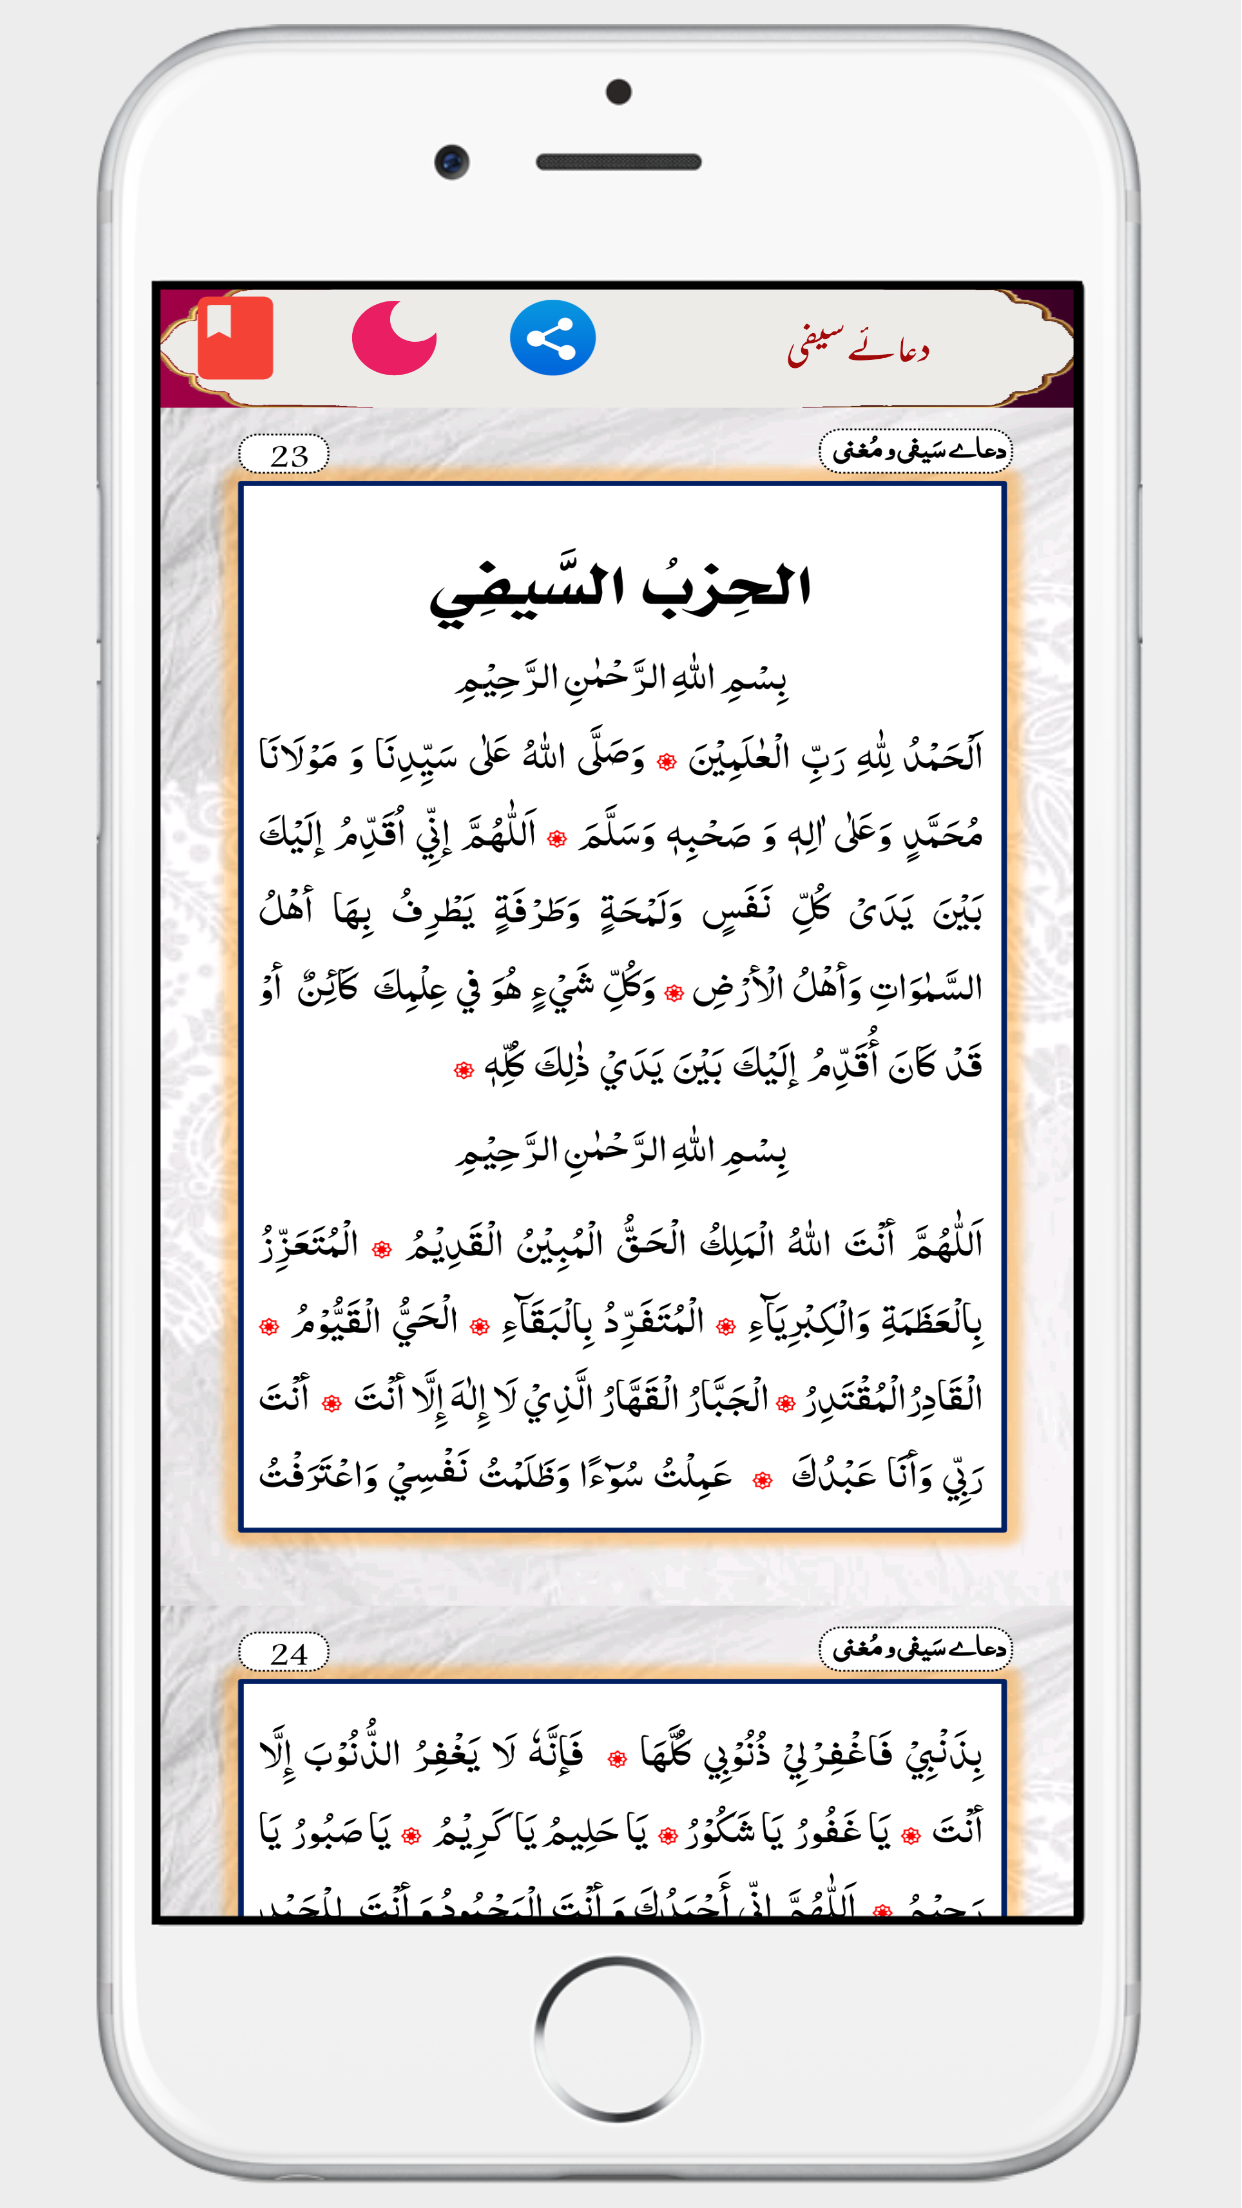 دعائے سیفی
دعاے سَیفی و مُغنی
23
الحِزبُ السَّيفِي
بِسْمِ اللّٰهِ الرَّحْمٰنِ الرَّحِيْمِ
اَلْحَمْدُ لِلّٰهِ رَبِّ الْعٰلَمِيْنَ ۞ وَصَلَّى اللّٰهُ عَلٰى سَيِّدِنَا وَ مَوْلَانَا
مُحَمَّدٍ وَعَلٰى اٰلِهٖ وَ صَحْبِهٖ وَسَلَّمَ ۞ اَللّٰهُمَّ إِنِّي اُقَدِّمُ إِلَيْكَ
بَيْنَ يَدَىْ كُلِّ نَفَسٍ وَلَمْحَةٍ وَطَرْفَةٍ يَطْرِفُ بِهَا أَهْلُ
السَّمٰوَاتِ وَأَهْلُ الْأَرْضِ ۞ وَكُلِّ شَيْءٍ هُوَ فِي عِلْمِكَ كَآئِنٌ أَوْ
قَدْ كَانَ أُقَدِّمُ إِلَيْكَ بَيْنَ يَدَيْ ذٰلِكَ كُلِّهٖ ۞
بِسْمِ اللّٰهِ الرَّحْمٰنِ الرَّحِيْمِ
اَللّٰهُمَّ أَنْتَ اللّٰهُ الْمَلِكُ الْحَقُّ الْمُبِيْنُ الْقَدِيْمُ ۞ الْمُتَعَزِّزُ
بِالْعَظَمَةِ وَالْكِبْرِيَآءِ ۞ الْمُتَفَرِّدُ بِالْبَقَآءِ ۞ الْحَيُّ الْقَيُّوْمُ ۞
الْقَادِرُ الْمُقْتَدِرُ ۞ الْجَبَّارُ الْقَهَّارُ الَّذِيْ لَا إِلٰهَ إِلَّا أَنْتَ ۞ أَنْتَ
رَبِّي وَأَنَا عَبْدُكَ ۞ عَمِلْتُ سُوْٓءًا وَظَلَمْتُ نَفْسِيْ وَاعْتَرَفْتُ
دعاے سَیفی و مُغنی
24
بِذَنْبِيْ فَاغْفِرْ لِيْ ذُنُوْبِي كُلَّهَا ۞ فَإِنَّهٗ لَا يَغْفِرُ الذُّنُوْبَ إِلَّا
أَنْتَ ۞ يَا غَفُورُ يَا شَكُوْرُ ۞ يَا حَلِيمُ يَا كَرِيْمُ ۞ يَا صَبُورُ يَا
رَحِيْمُ ۞ اَللّٰهُمَّ إِنِّي أَحْمَدُكَ وَ أَنْتَ الْمَحْمُودُ وَ أَنْتَ لِلْحَمْدِ